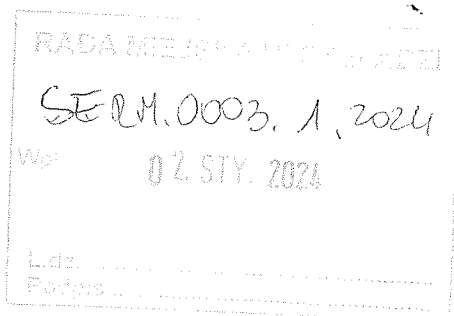 RADA MIEJSKA
SERM.0003.1.2024
Wpł.
02. STY. 2024
L.dz. ........
Podpis ........